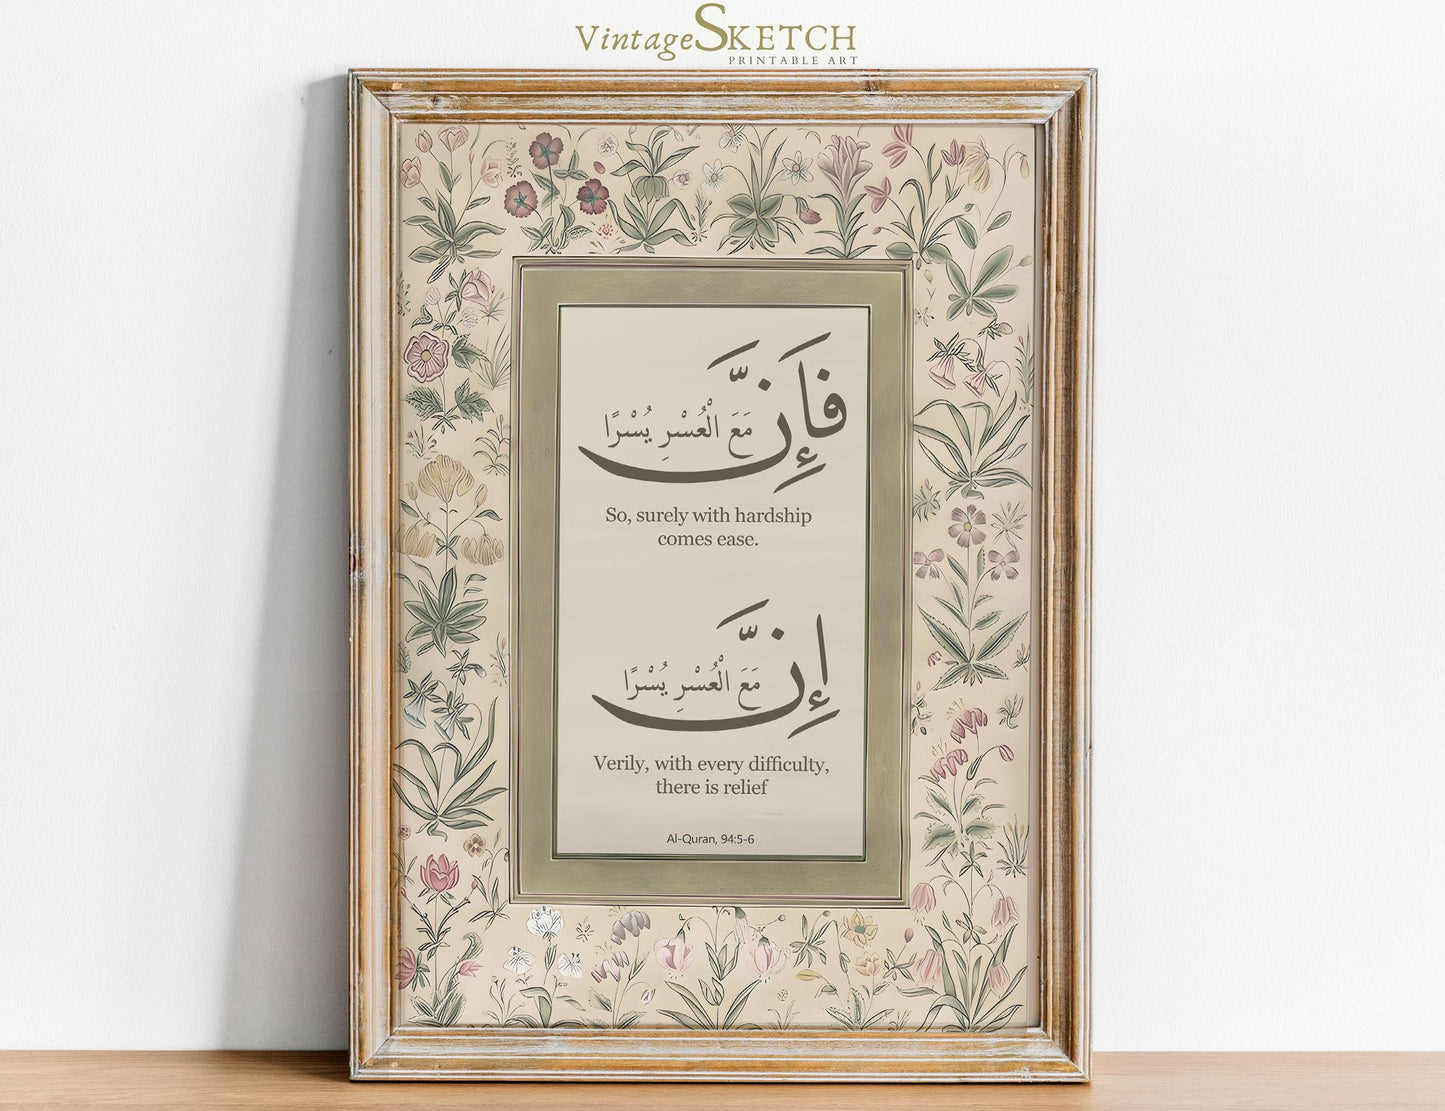 VintageSKETCH
PRINTABLE ART
فَإِنَّ مَعَ الْعُسْرِ يُسْرًا
So, surely with hardship
comes ease.
إِنَّ مَعَ الْعُسْرِ يُسْرًا
Verily, with every difficulty,
there is relief
Al-Quran, 94:5-6